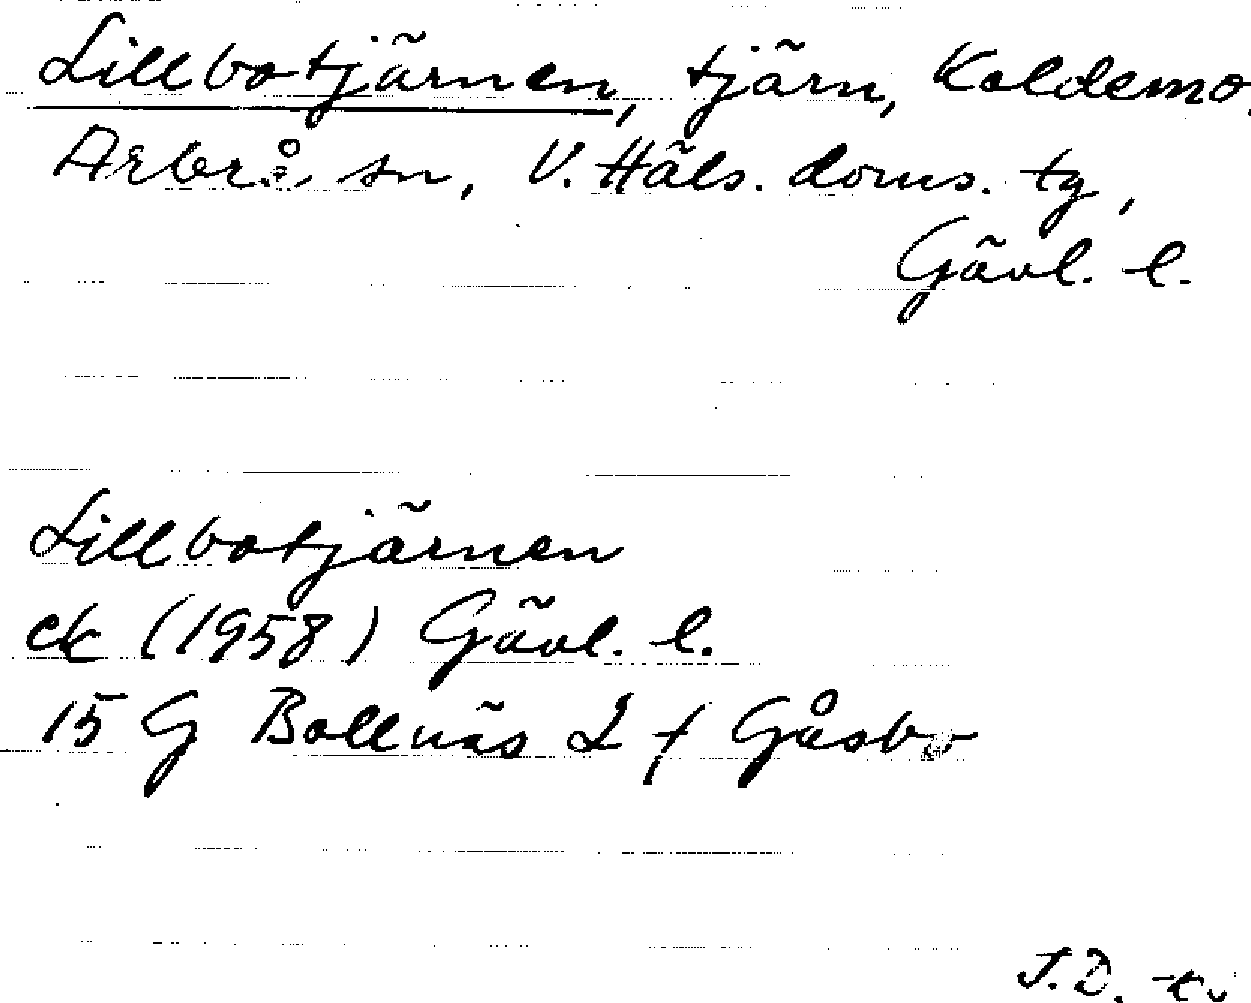 Lillbotjärnen, tjärn, Koldemo,
Arbrå sn, V. Häls. doms. tg,
Gävl. l.
Lillbotjärnen
ek (1958) Gävl. l.
15 G Bollnäs 2 f Gåsbo
J.D.